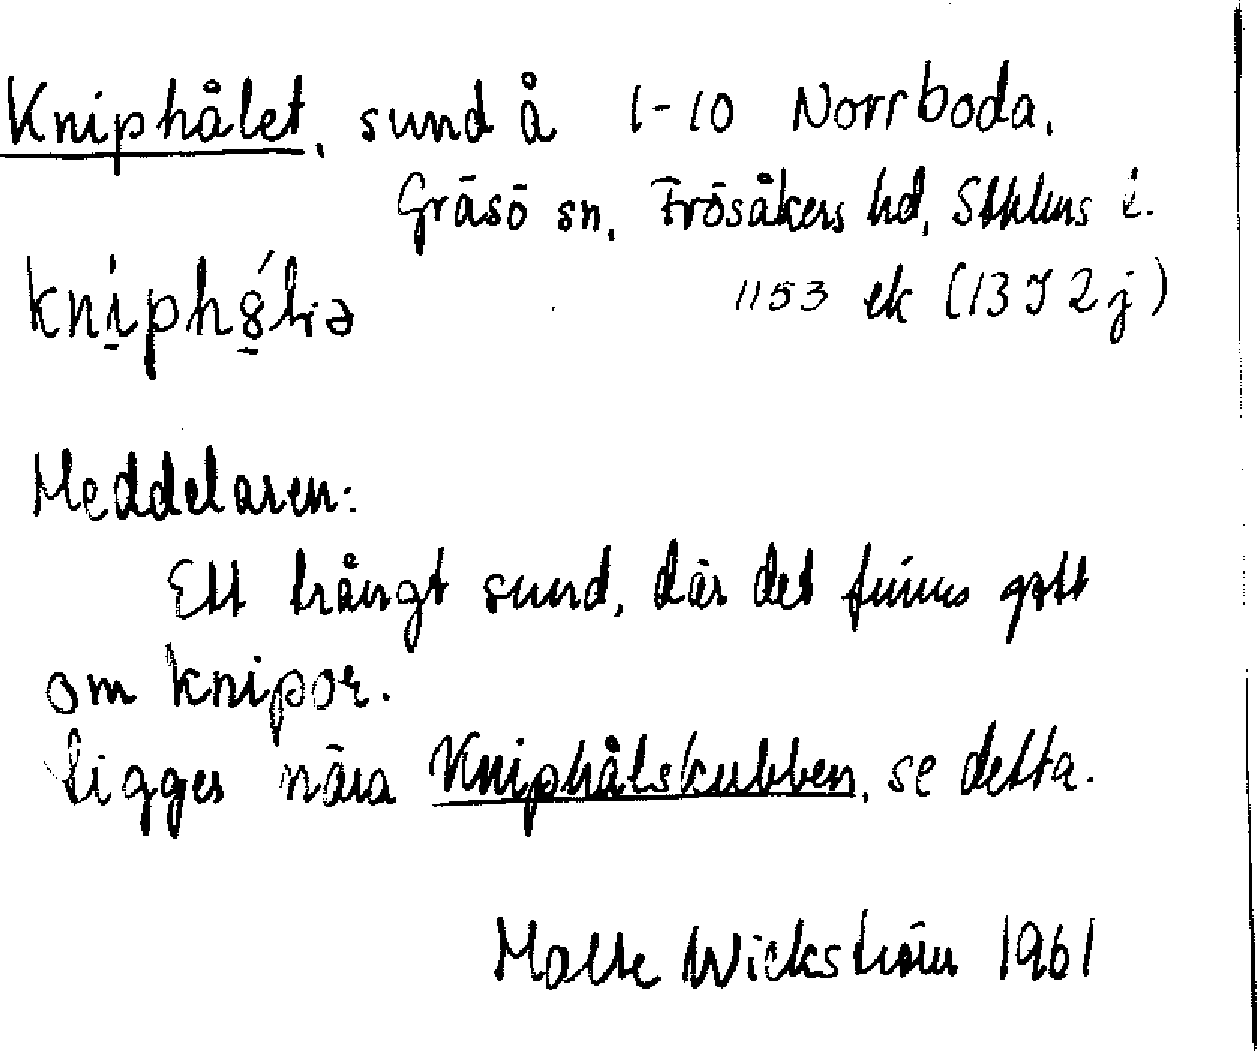 Kniphålet, sund å 1-10 Norrboda.
Gräsö sn, Frösåkers hd, Sthlms l.
1153 ek (13 I 2 j)
Meddelaren:
Ett trångt sund, där det finns gott
om knipor.
Ligger nära Kniphålskubben, se detta.
Malte Wickström 1961